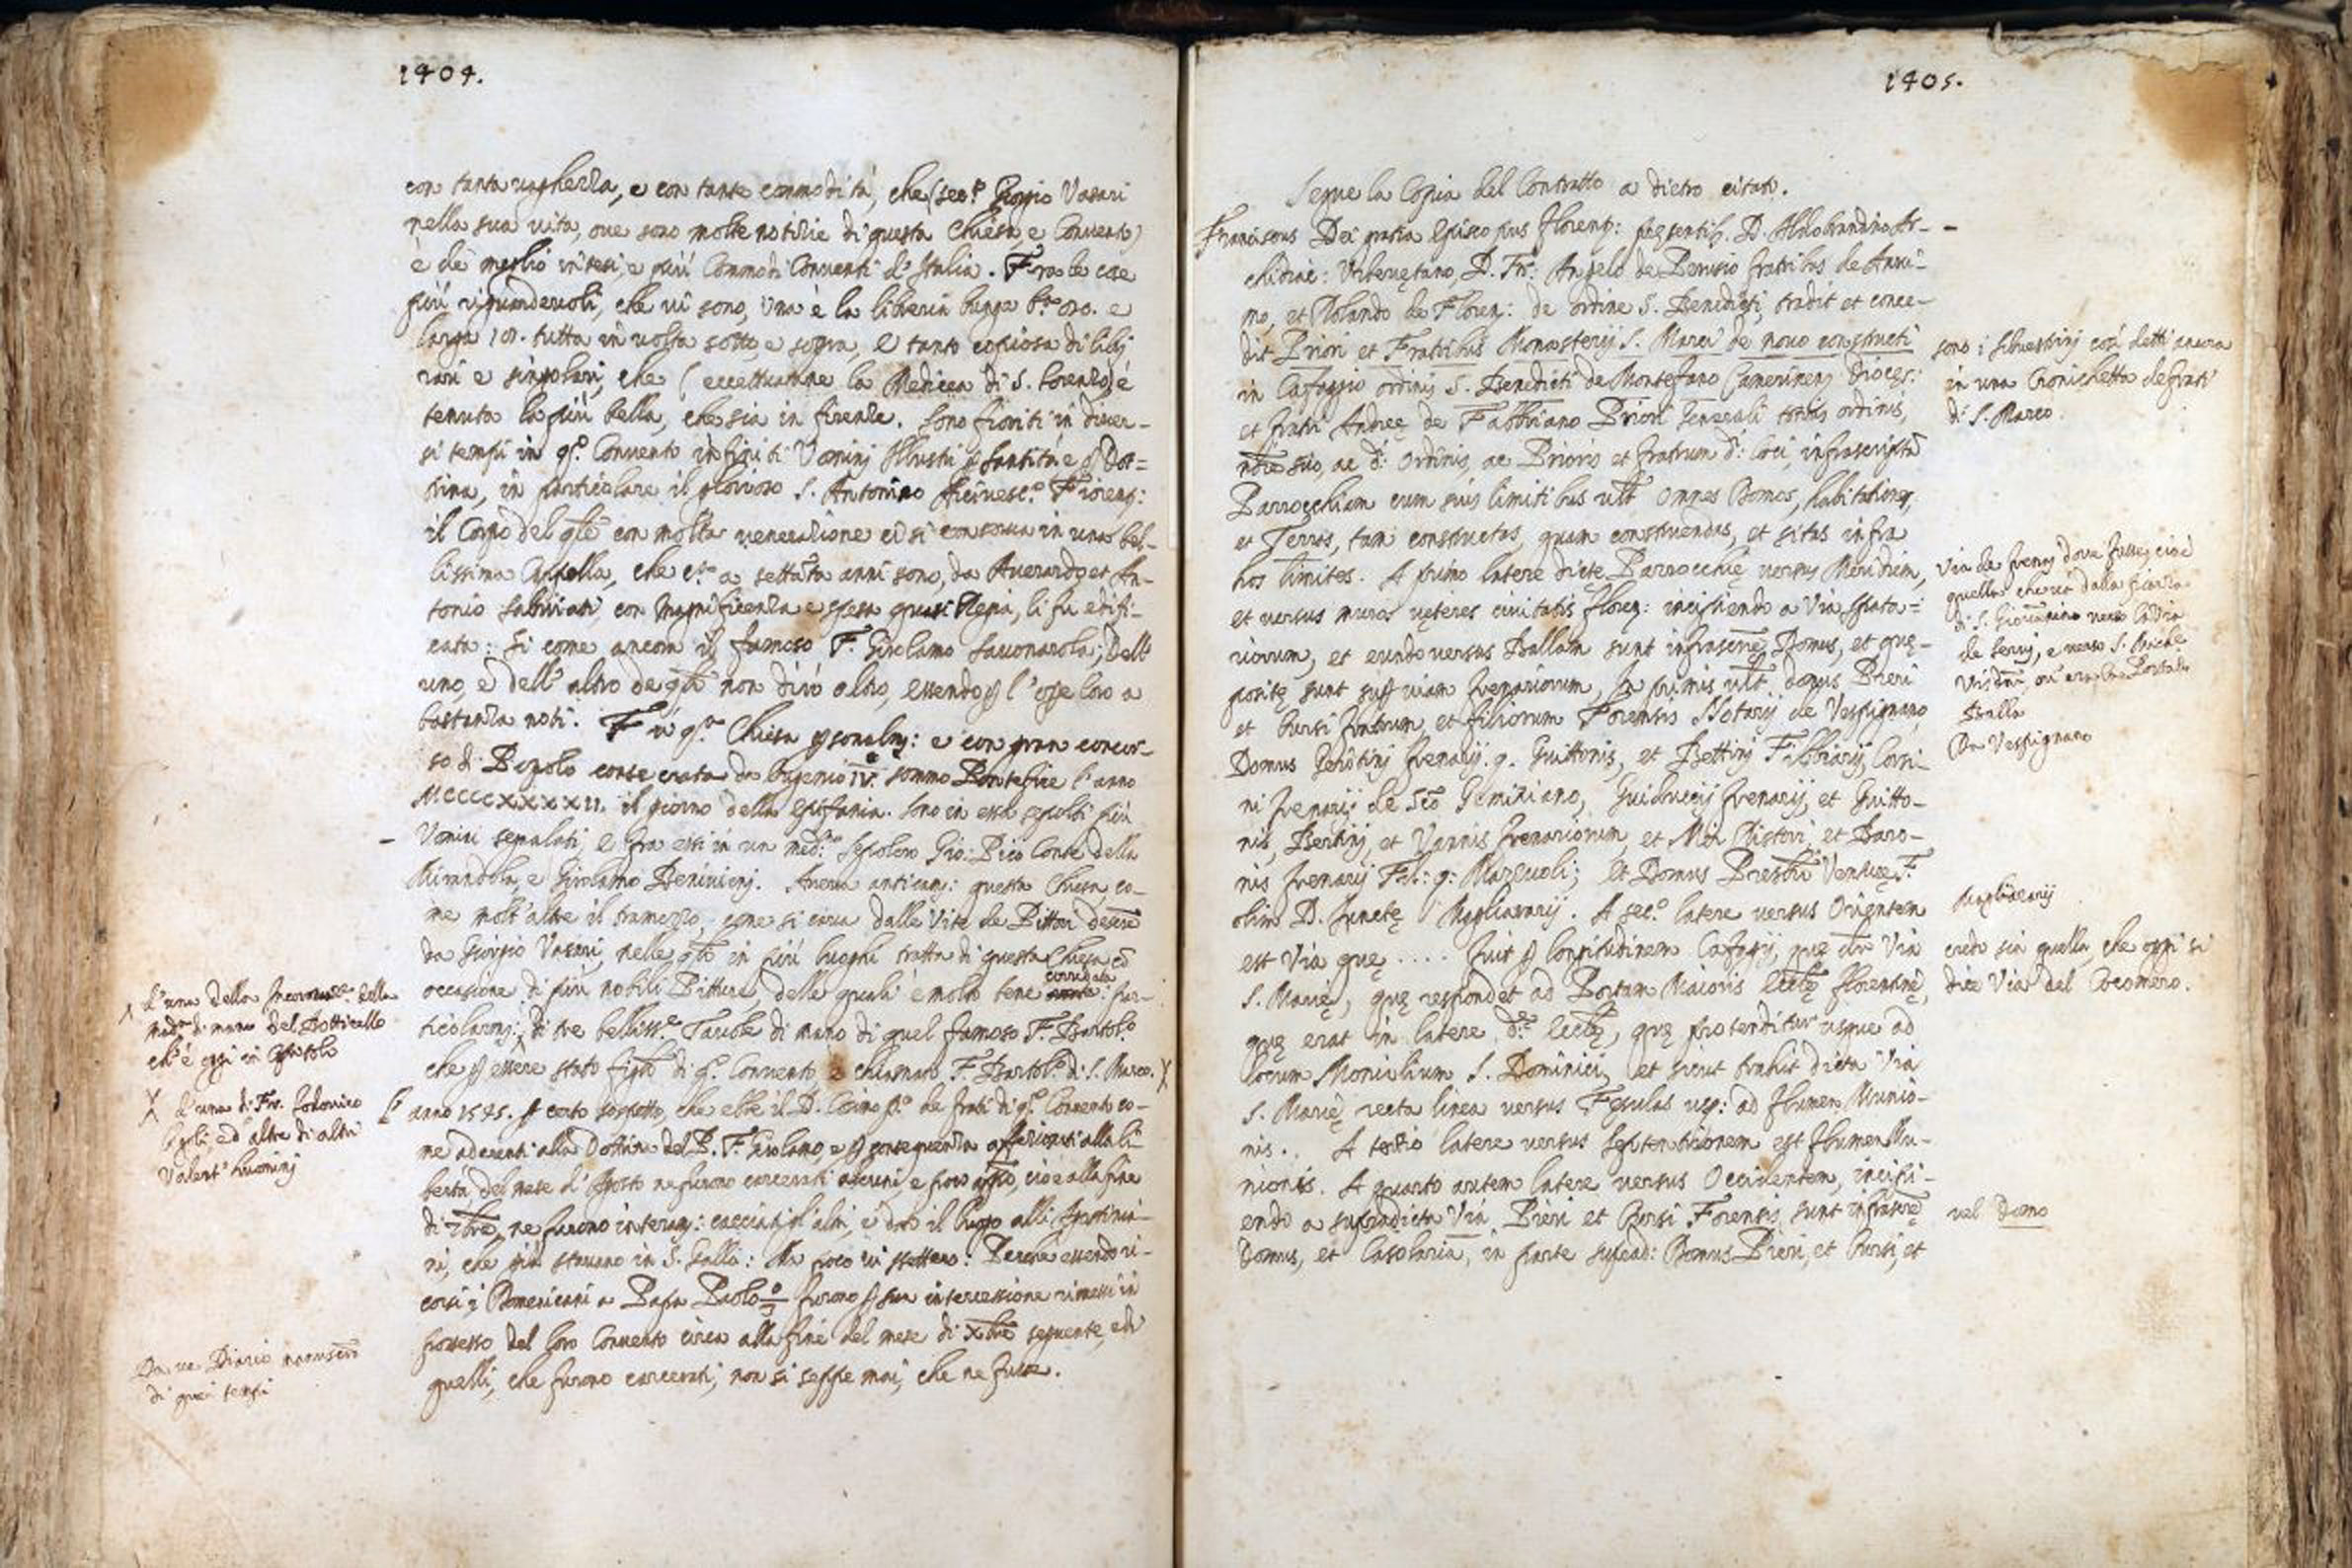 1404.
con tanta vaghezza, e con tante commodità, che (sec.º Giorgio Vasari
nella sua vita, ove sono molte notizie di questa Chiesa, e Convento)
è de meglio intesi, e più Commodi Conventi d'Italia. Fra le cose
più riguardevoli, che vi sono, una è la libreria lunga b.ª 80. e
larga 18. tutta in volta sotto, e sopra, e tanto copiosa di libri
rari e singolari, che (eccettuatone la Medicea di S. Lorenzo) è
tenuta la più bella, che sia in firenze. Sono fioriti in diver-
si tempi in q.º Convento infiniti Uomini Illustri p santità e p Dot=
trina, in particolare il glorioso S. Antonino Arcivesc.º Fiorent:
il Corpo del qle con molta venerazione vi si conserva in una bel-
lissima Cappella, che c.ª a settãta anni sono, da Averardo et An-
tonio Salviati, con Magnificenza e spesa quasi Regia, li fu edifi-
cata: Si come ancora il famoso F. Girolamo Savonarola; Dell'
uno, e dell'altro de qli non dirò altro, essendo p l'opre loro a
bastanza noti. Fù q.ª Chiesa psonalm: e con gran concor-
so di Popolo consecrata da Eugenio IV. sommo Pontefice l'anno
MCCCCXXXXII. il giorno della Epifania. Sono in essa sepolti più
Uomini segnalati, e fra essi in un med.º Sepolcro Gio: Pico Conte della
Mirandola, e Girolamo Benivieni. Aveva anticam: questa Chiesa, co-
me molt'altre il tramezzo, come si cava dalle Vite de Pittori descrẽ
da Giorgio Vasari, nelle qli in più luoghi tratta di questa Chiesa cõ
occasione di più nobili Pitture, delle quali è molto bene corredata: par-
ticolarm: di tre belliss.e Tavole di mano di quel famoso F. Bartol.º
che p essere stato figlio di q.º Convento, è chiamato F. Bartol.º di S. Marco. X
L' anno 1545. p certo sospetto, che ebbe il D. Cosimo p.º de frati di q.º Convento co-
me aderenti alla Dottrina del P. F. Girolamo, e p conseguenza affezionati alla li-
bertà, del mese d'Agosto ne furono carcerati alcuni, e poco apsso, cioè alla fine
di 7bre, ne furono interam: cacciati gl'altri, e dato il luogo alli Agostinia-
ni, che già stavano in S. Gallo: Ma poco vi stettero: Perche essendo ri-
corsi i Domenicani a Papa Paolo 3º furono p sua intercessione rimessi in
possesso del loro Convento circa alla fine del mese di Xbre seguente, e di
quelli, che furono carcerati, non si seppe mai, che ne fusse.
L'una della Incoronaz.e della
Mad.ª di mano del Botticello
ch'è oggi in Capitolo
X L'una di Fr. Lodovico
Cigoli, ed altre di altri
Valent'huomini
Da un Diario manuscrõ
di quei tempi
1405.
Segue la Copia del Contratto a dietro citato.
Franciscus Dei gratia Episcopus Florent: psentib. D. Aldobrandino Ar-
chidiac: Urbevetano, D. Fr: Angelo de Perusio fratribus de Armi-
no, et Rolando de Floren: de ordine S. Benedicti, tradit et conce-
dit Priori et Fratribus Monasterij S. Marci de novo constructi
in Cafaggio ordinis S. Benedicti de Montefano Camerinen; Dioces:
et fratri Andreę de Fabbriano Priori Generali totius ordinis,
nõie suo, ac d: Ordinis, ac Prioris et fratrum d: Loci, infrascriptã
Parrocchiam cum suis limitibus vlt omnes Domos, habitationes,
et Terras, tam constructas, quam construendas, et sitas infra
hos limites. A primo latere dictę Parrocchię versus Meridiem,
et versus muros veteres civitatis floren: incipiendo a Via Spata-
riorum, et eundo versus Ballam sunt infrascrię Domus, et quę
positę sunt sup viam frenariorum, In primis vlt domus Pieri
et Chersi fratrum et filiorum Forensis Notarij de Vespignano
Domus Gerõtini frenarij q. Guittonis, et Bettini Fibbiarij, Corsi-
ni frenarij de Scõ Geminiano, Guiduccij frenarij, et Guitto-
nis, Bertini, et Vannis frenariorum, et Mei Ristori, et Baro-
nis frenarij Fil: q: Marsuoli; et Domus Presbri Venturę F.
olim D. Junctę Magliavarij. A sec.º latere versus Orientem
est Via quę ..... fuit p longitudinem Cafagij, quę dr Via
S. Marię, quę respondet ad Portam Maioris Ecclę Florentinę,
quę erat in latere d.ę Ecclę, quę protenditur usque ad
locum Monialium S. Dominici, et sicut trahit dicta Via
S. Marię recta linea versus Fęsulas usq: ad flumen Munio-
nis.. A tertio latere versus Septentrionem est flumen Mu-
nionis. A quarto autem latere versus Occidentem, incipi-
endo a supradicta Via Pieri et Chersi Forensis, sunt infrascrę
Domus, et Casolaria, in parte supead: Domus Pieri, et Chersi, et
sono i Silvestrini così detti ancora
in una Cronichetta de frati
di S. Marco.
Via de freni dove fusse, cioè
quella che va dalla piazza
di S. Giovannino verso la Via
de Servi, e verso S. Michele
Visdni, ov' era la Porta di
Balla
Da Vespignano
Magliavarij
credo sia quella, che oggi si
dice Via del Cocomero.
vel Domo